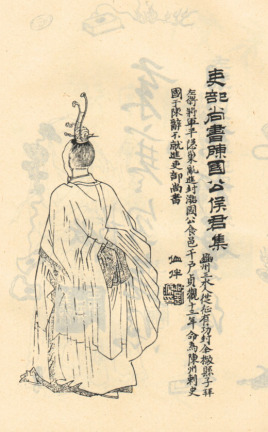 吏部尚書陳國公侯君集
豳州三水人從征有功封全椒縣子拜
左衛將軍平隱巢亂進封潞國公食邑千戶貞觀十一年命為陳州刺史
國于陳辭不就進吏部尚書